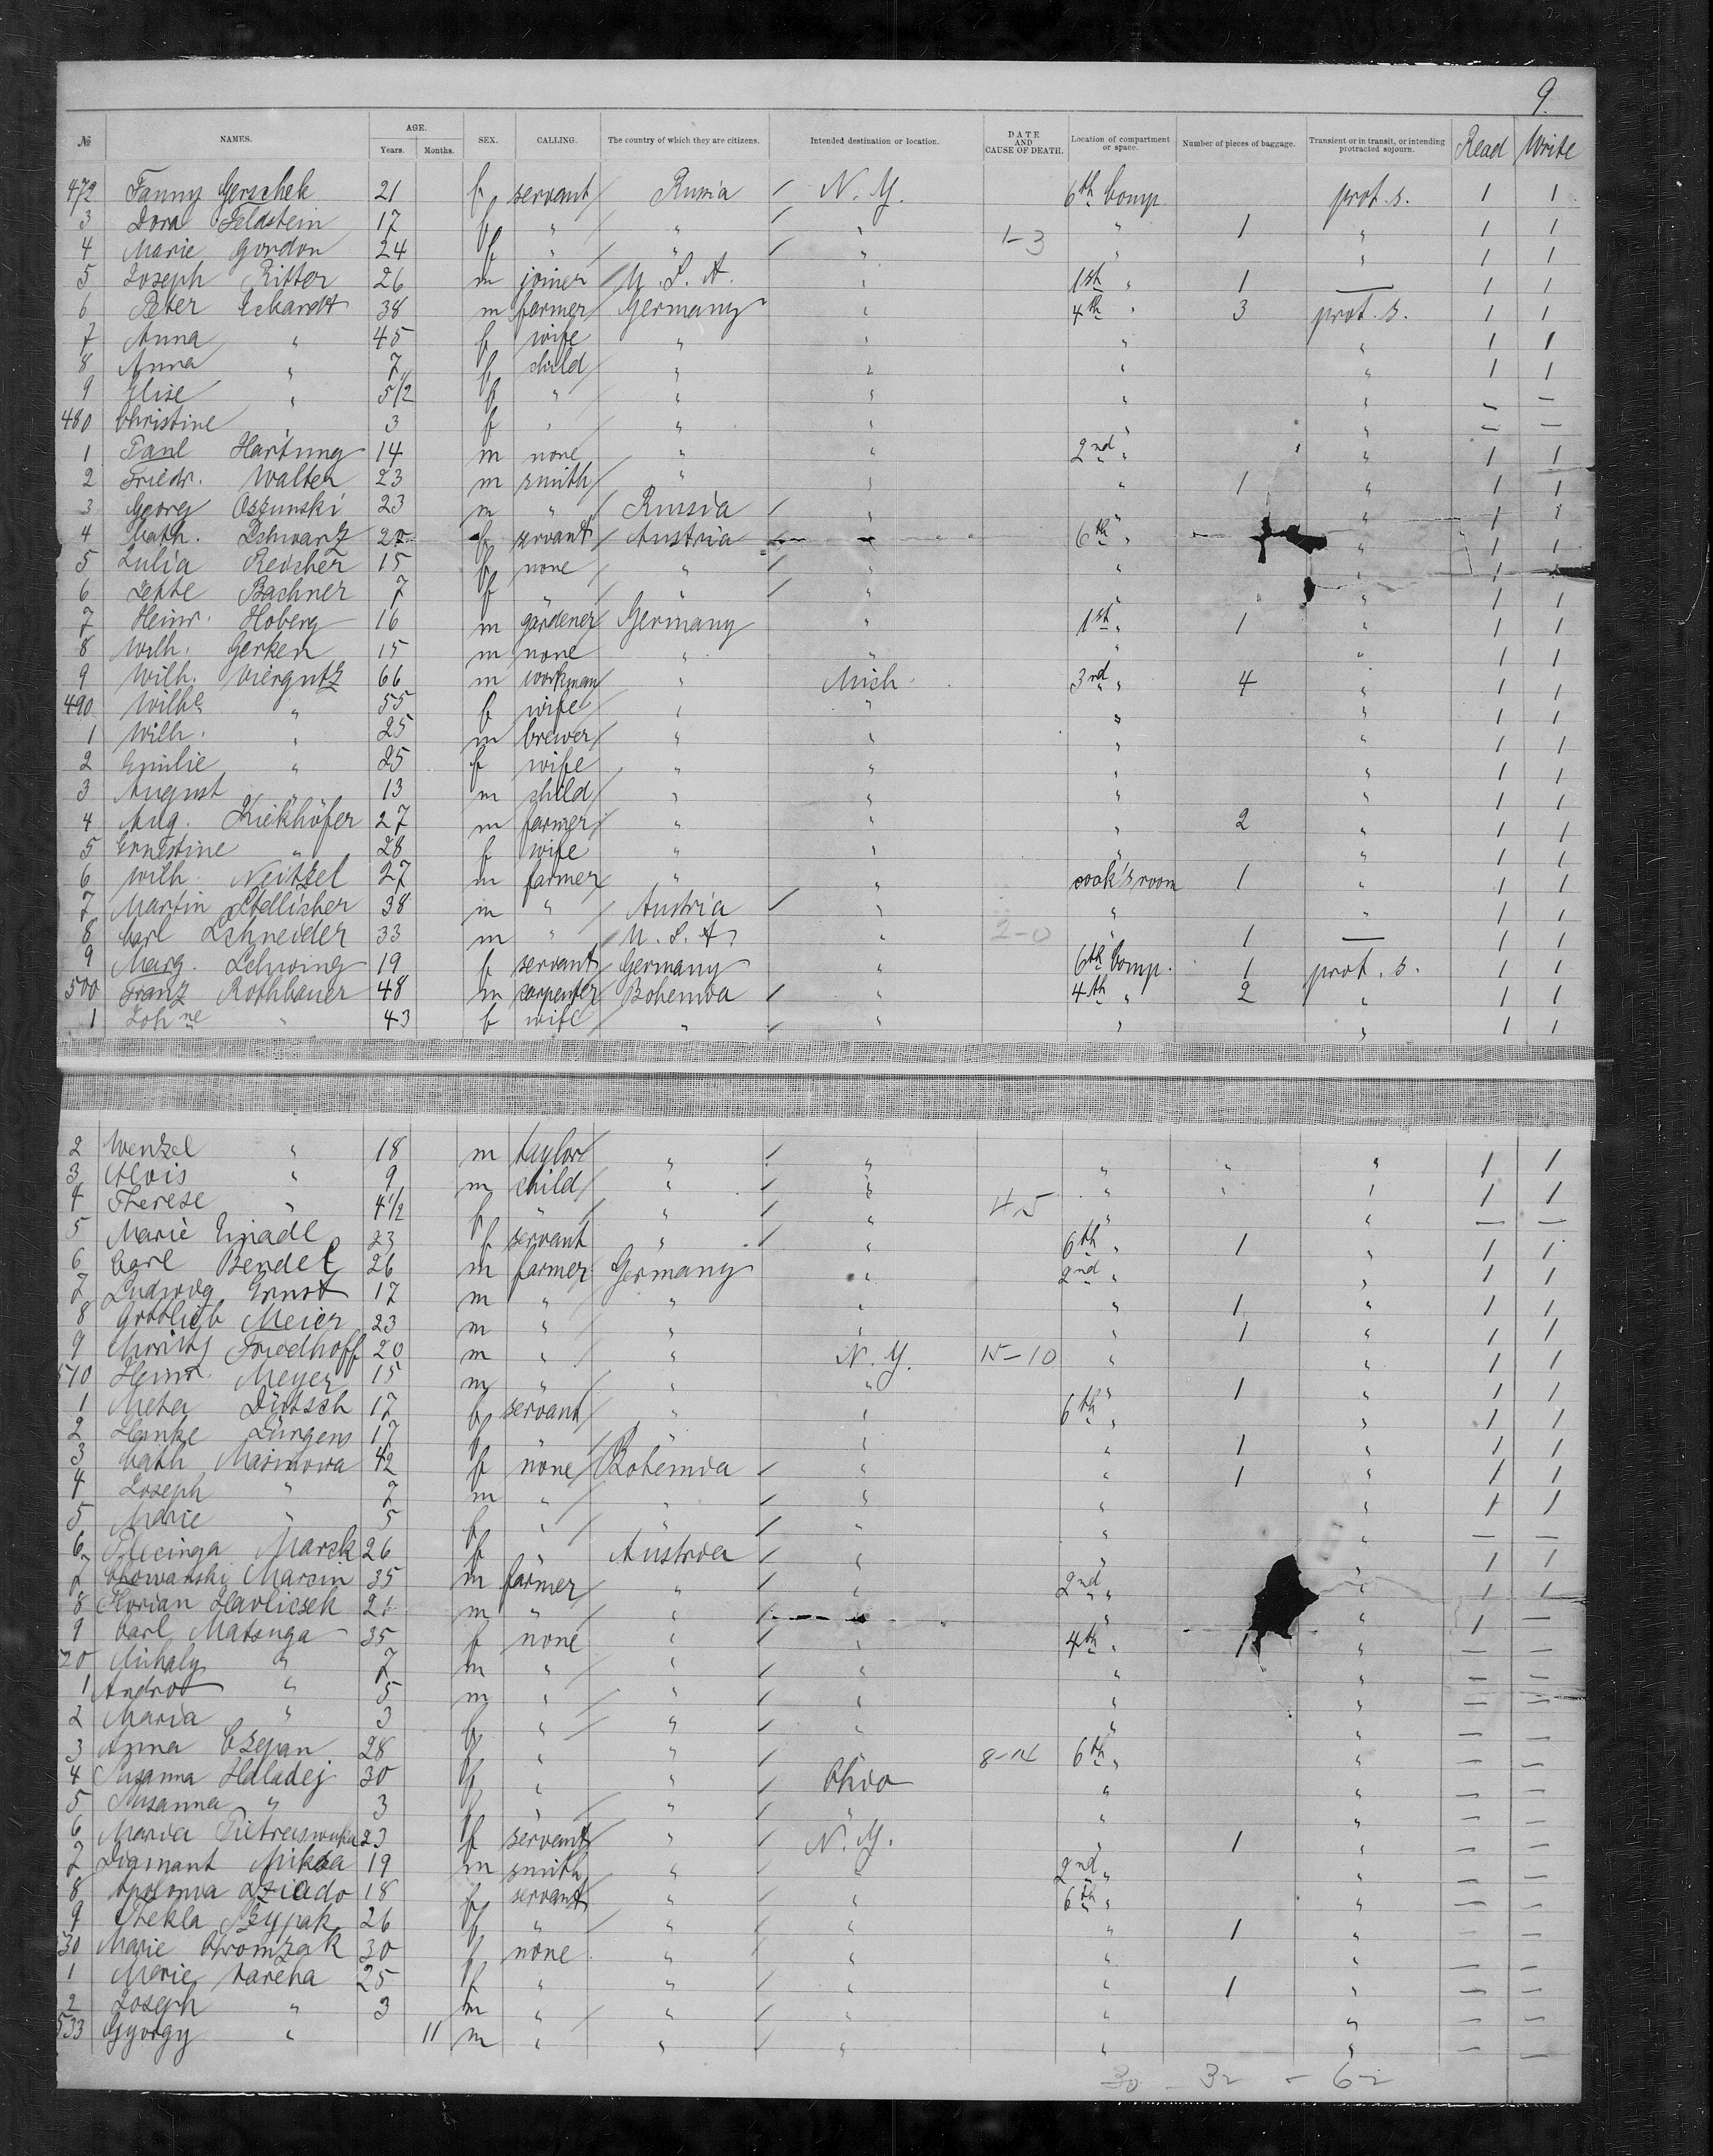 9.
№ NAMES. AGE. Years. Months. SEX. CALLING. The country of which they are citizens. Intended destination or location. DATE AND CAUSE OF DEATH. Location of compartment or space. Number of pieces of baggage. Transient or in transit, or intending protracted sojourn. Read Write
472 Fanny Gerschek 21 f servant Russia N. Y. 6th Comp. prot. s. 1 1
3 Dora Feldstein 17 f " " " " 1 " 1 1
4 Marie Gordon 24 f " " " 1-3 " " 1 1
5 Joseph Ritter 26 m joiner U. S. A. " 1st " 1 — 1 1
6 Peter Eckardt 38 m farmer Germany " 4th " 3 prot. s. 1 1
7 Anna " 45 f wife " " " " 1 1
8 Anna " 7 f child " " " " 1 1
9 Elise " 5 1/2 f " " " " " — —
480 Christine " 3 f " " " " " — —
1 Paul Hartung 14 m none " " 2nd " " " 1 1
2 Friedr. Walter 23 m smith " " " 1 " 1 1
3 Georg Oszunski 23 m " Russia " " " 1 1
4 Cath. Schwartz 22 f servant Austria " 6th " " 1 1
5 Julia Reicher 15 f none " " " " 1 1
6 Zette Bachner 7 f " " " " 1 1
7 Heinr. Hoberg 16 m gardener Germany " 1st " 1 " 1 1
8 Wilh. Gerken 15 m none " " " " 1 1
9 Wilh. Viergutz 66 m workman " Mich. 3rd " 4 " 1 1
490 Wilhe " 55 f wife " " " " 1 1
1 Wilh. " 25 m brewer " " " " 1 1
2 Emilie " 25 f wife " " " " 1 1
3 August " 13 m child " " " " 1 1
4 Aug. Kiekhöfer 27 m farmer " " " 2 " 1 1
5 Ernestine " 28 f wife " " " " 1 1
6 Wilh. Neitzel 27 m farmer " " cook's room 1 " 1 1
7 Martin 38 m " Austria " " " 1 1
8 Carl Schneider 33 m " U. S. A. " 2-0 " 1 — 1 1
9 Marg. Schwing 19 f servant Germany " 6th Comp. 1 prot. s. 1 1
500 Franz Rothbauer 48 m carpenter Bohemia " 4th " 2 " 1 1
1 Johne " 43 f wife " " " " 1 1
2 Wenzel " 18 m taylor " " " " " 1 1
3 Alois " 9 m child " " " " " 1 1
4 Therese " 4 1/2 f " " " 4-5 " " — —
5 Marie 23 f servant " " 6th " 1 " 1 1
6 Carl Bendel 26 m farmer Germany " 2nd " " 1 1
7 Ludwig Ernst 17 m " " " " 1 " 1 1
8 Gottlieb Meier 23 m " " " " 1 " 1 1
9 Moritz Friedhoff 20 m " " N. Y. 15-10 " " 1 1
510 Heinr. Meyer 15 m " " " " 1 " 1 1
1 Meta Dütsch 17 f servant " " 6th " " 1 1
2 Jürgens 17 f " " " " 1 " 1 1
3 Cath 42 f none Bohemia " " 1 " 1 1
4 Joseph " 7 m " " " " " 1 1
5 Marie " 5 f " " " " " — —
6 Marsk 26 f " Austria " " " 1 1
7 Marcin 35 m farmer " " 2nd " " 1 1
8 Florian Havlicsek 21 m " " " " " 1 —
9 Carl Matsuga 35 f none " " 4th " 1 " — —
20 Mihaly " 7 m " " " " " — —
1 Andro " 5 m " " " " " — —
2 Maria " 3 f " " " " " — —
3 Anna Czepan 28 f " " " 8-14 6th " " — —
4 Susanna Haladej 30 f " " Ohio " " — —
5 Susanna " 3 f " " " " " — —
6 Maria 23 f servant " N. Y. " 1 " — —
7 Diamant Miksa 19 m smith " " 2nd " " — —
8 Apolonia Dziado 18 f servant " " 6th " " — —
9 Thekla 26 f " " " " 1 " — —
30 Marie 30 f none " " " " — —
1 Marie Vareha 25 f " " " " 1 " — —
2 Joseph " 3 m " " " " " — —
533 György " 11 m " " " " " — —
30 - 32 - 62